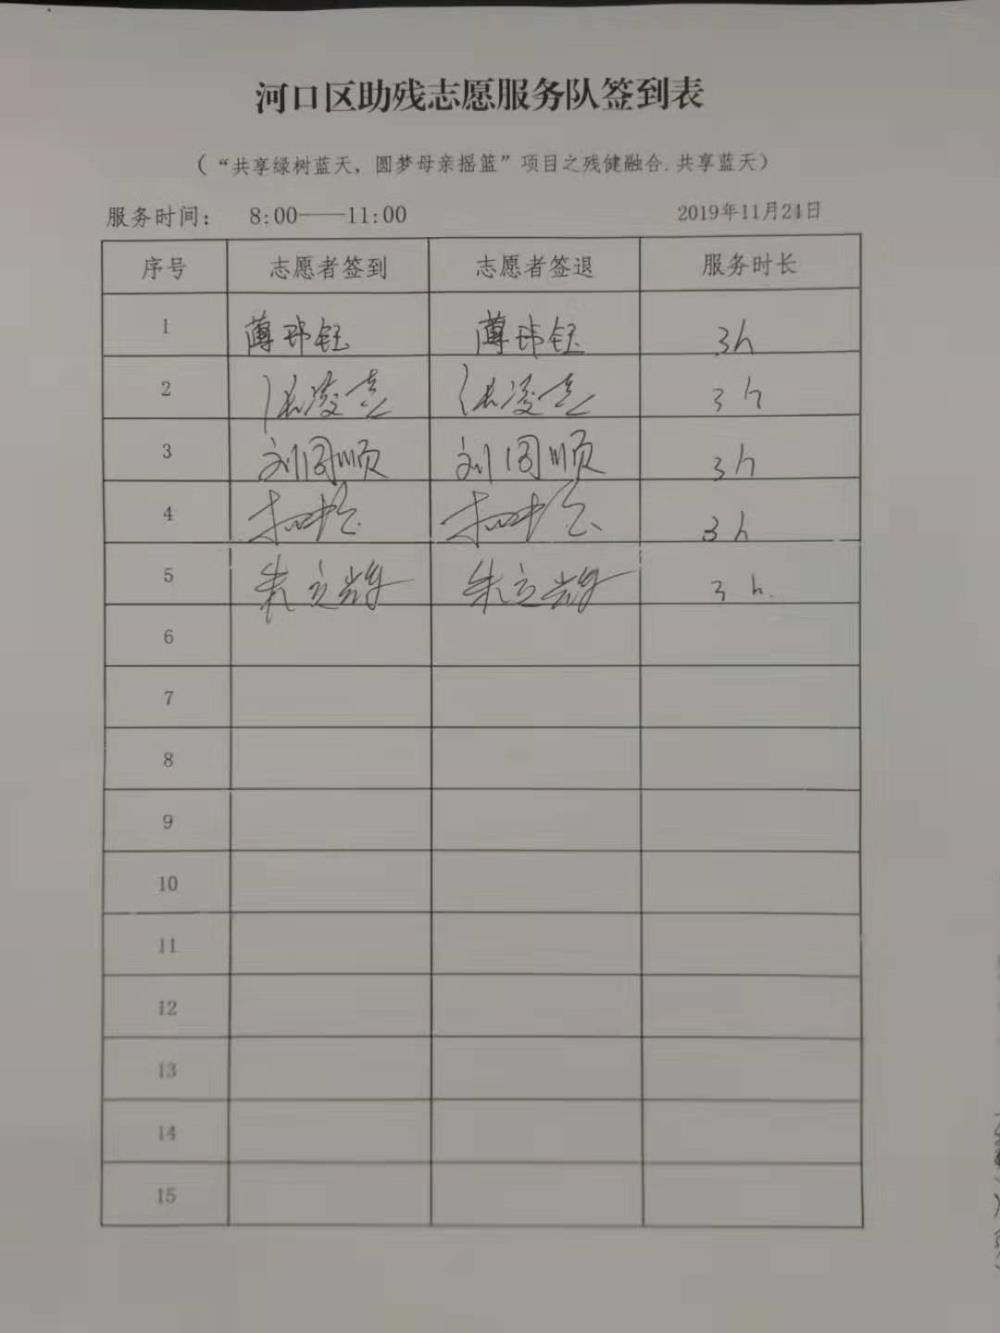 河口区助残志愿服务队签到表
（“共享绿树蓝天，圆梦母亲摇篮”项目之残健融合.共享蓝天）
服务时间： 8:00——11:00 2019年11月24日
序号 志愿者签到 志愿者签退 服务时长
1 薄玮钰 薄玮钰 3h
2 3h
3 刘同顺 刘同顺 3h
4 3h
5 朱立辉 朱立辉 3h.
6
7
8
9
10
11
12
13
14
15